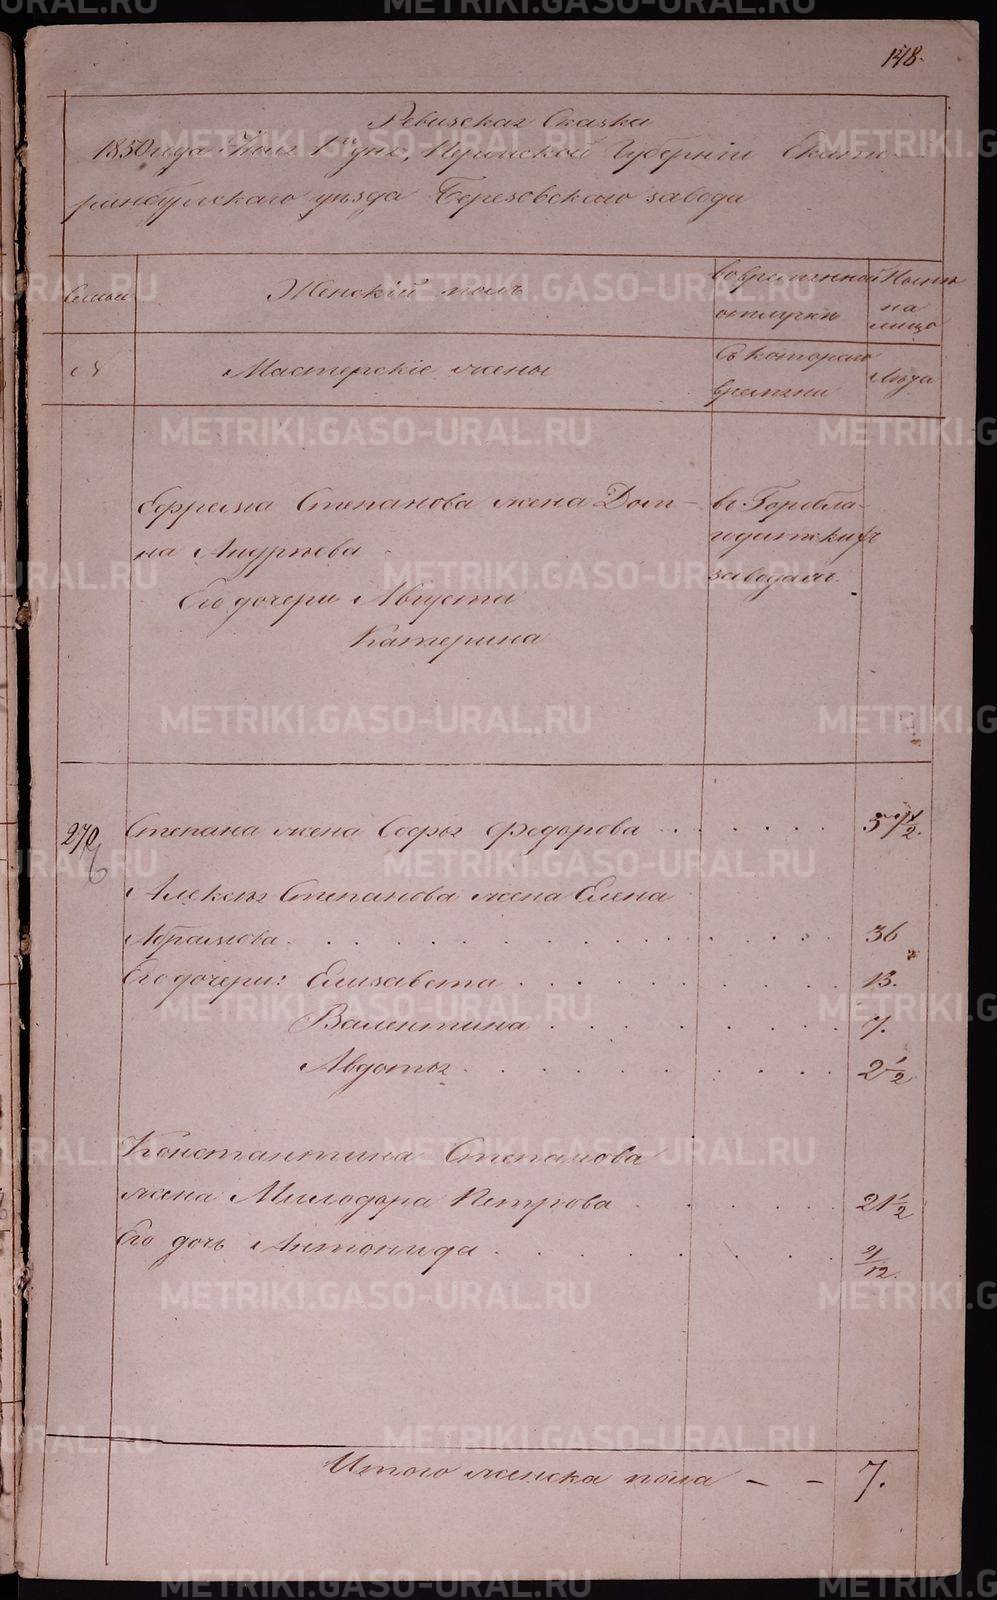 148.
Ревизская Сказка
1850 года Июля 1го дня, Пермской Губернии Екате-
ринбургскаго уезда Березовскаго завода
Семьи
Женскій полъ
во временной отлучке
Ныне на лицо
№
Мастерскіе жены
Съ котораго времени
Лета
Ефрема Степанова жена Дом-
на Андреева
Его дочери Августа
Катерина
въ Горобла-
годатскихъ
заводахъ.
270
Степана жена Софья Федорова
57 1/2.
Алексея Степанова жена Елена
Абрамова
36
Его дочери: Елизавета
13.
Валентина
7.
Авдотья
2 1/2
Константина Степанова
жена Милодора Петрова
21 1/2
Его дочь Антонида
9/12.
Итого женска пола - - 7.
METRIKI.GASO-URAL.RU